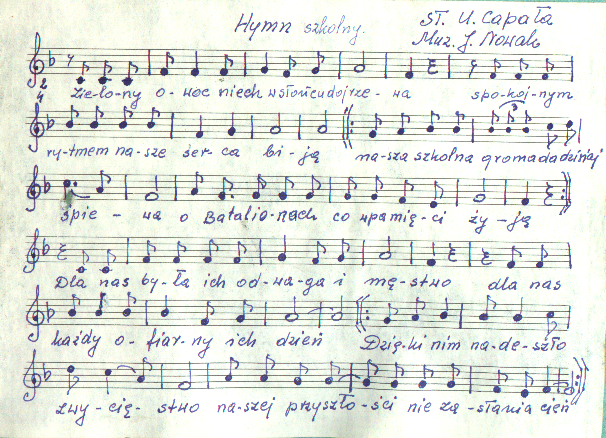 Hymn szkolny.
Sł. U. Capała
Muz. J. Nowak
2
4
Zie-lo-ny o-woc niech w słońcu dojrze-wa spo-koj-nym
ry-tmem na-sze ser-ca bi-ją nasza szkolna gromada dzisiaj
śpie-wa o Batalio-nach co w pamię-ci ży-ją
Dla nas by-ła ich od-wa-ga i mę-stwo dla nas
każdy o-fiar-ny ich dzień Dzię-ki nim na-de-szło
zwy-cię-stwo na-szej przyszło-ści nie za-słania cień